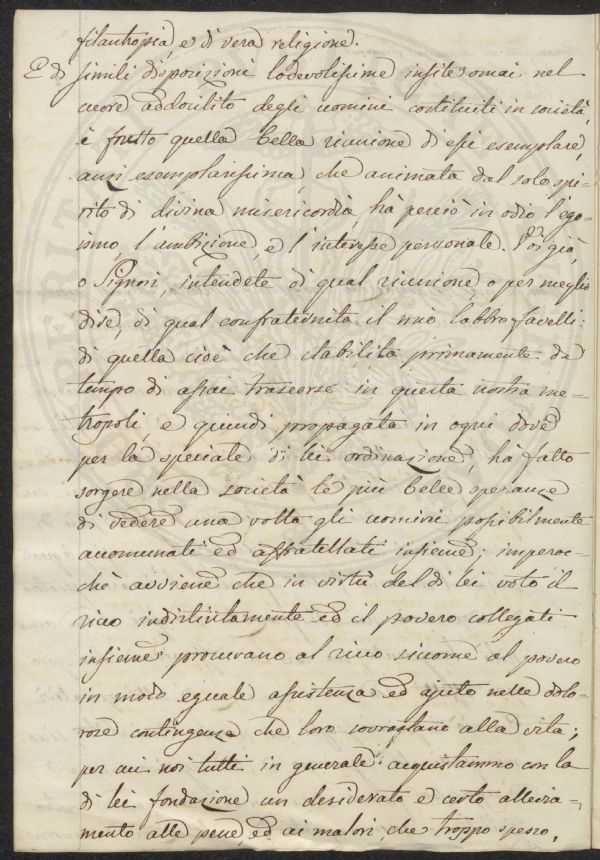 filantropia, e di vera religione.
E di simili disposizioni lodevolissime insite omai nel
cuore addocilito degli uomini costituiti in società,
è frutto quella bella riunione di essi esemplare,
anzi esemplarissima, che animata dal solo spi-
rito di divina misericordia, ha perciò in odio l'ego-
ismo, l'ambizione, e l'interesse personale. Voi già,
o Signori, intendete di qual riunione, o per meglio
dire, di qual confraternita il mio labbro favelli:
di quella cioè che stabilita primamente da
tempo di assai trascorso in questa nostra me-
tropoli, e quindi propagata in ogni dove
per la speciale di lei ordinazione, ha fatto
sorgere nella società le più belle speranze
di vedere una volta gli uomini possibilmente
accomunati ed affratellati insieme; imperoc-
chè avviene che in virtù del di lei voto il
ricco indistintamente ed il povero collegati
insieme procurano al ricco siccome al povero
in modo eguale assistenza ed ajuto nelle dolo-
rose contingenze che loro sovrastano alla vita;
per cui noi tutti in generale acquistammo con la
di lei fondazione un desiderato e certo allevia-
mento alle pene, ed ai malori, che troppo spesso,